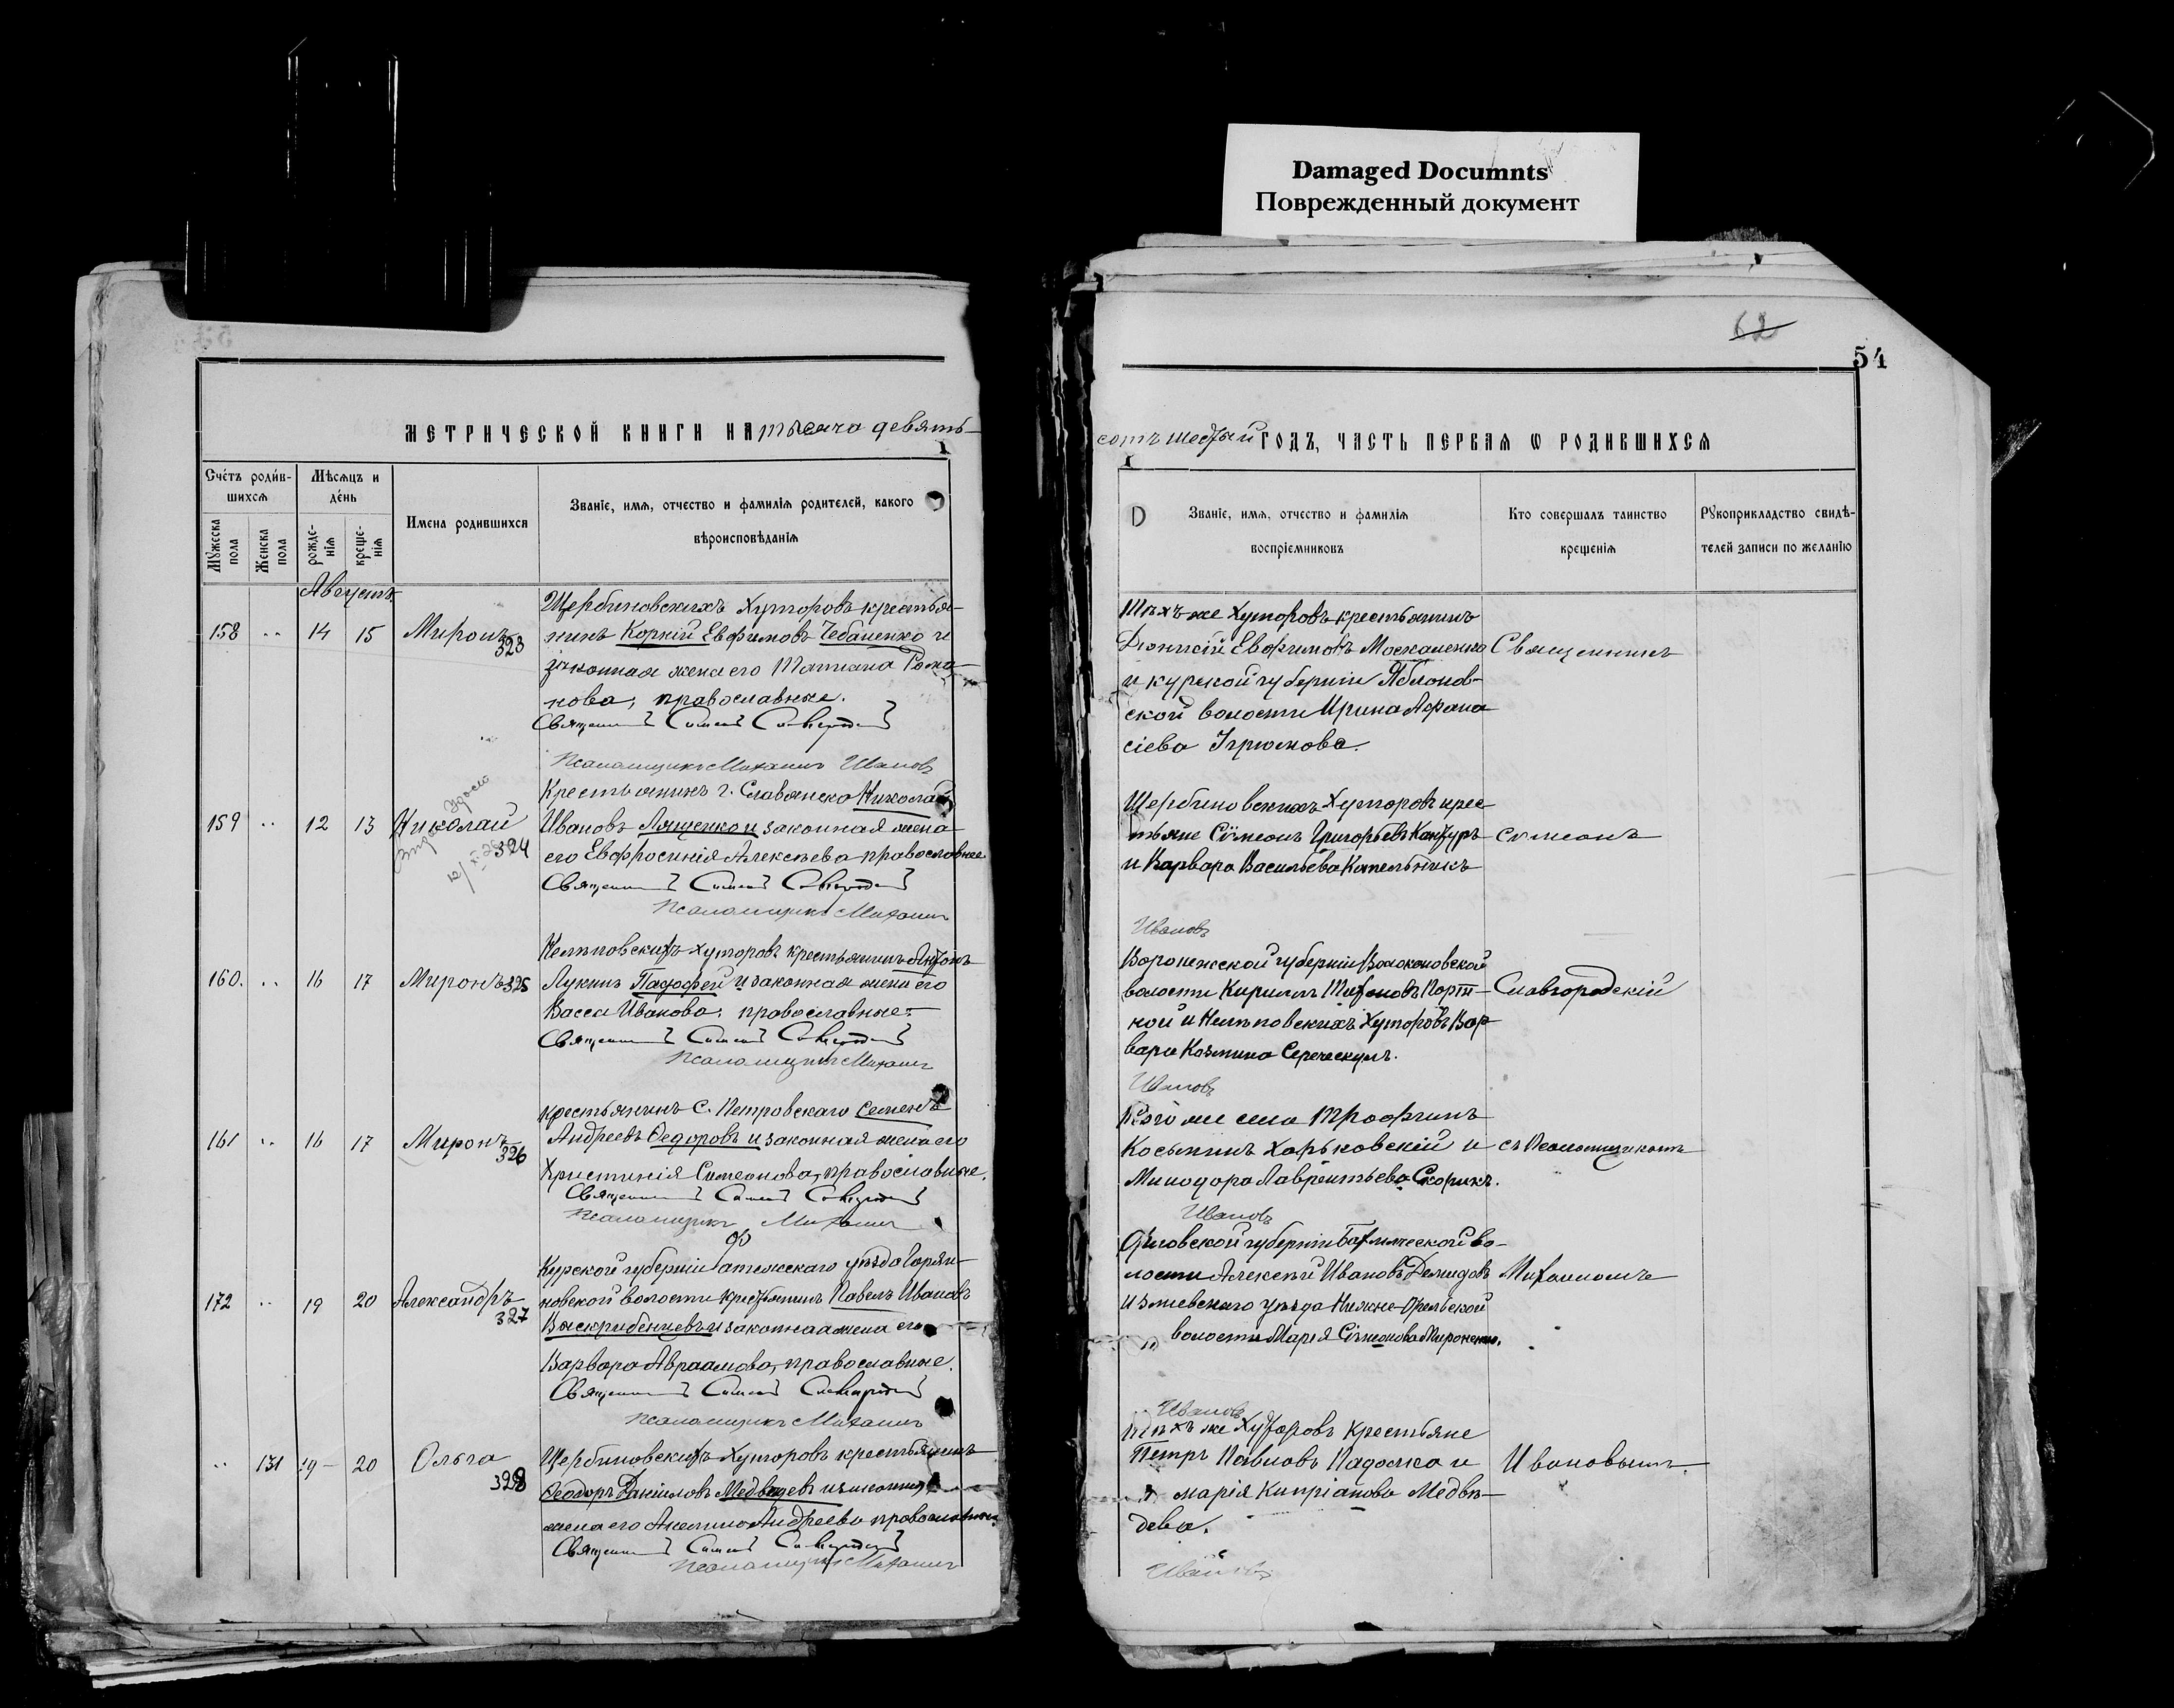 Damaged Documnts
Поврежденный документ
62
54
МЕТРИЧЕСКОЙ КНИГИ НА тысяча девять-
сотъ шестый ГОДЪ, ЧАСТЬ ПЕРВАЯ Ѡ РОДИВШИХСѦ
I
I
Счетъ родив-
шихсѧ
Мѣсѧцъ и
день
Мужеска
пола
Женска
пола
рожде-
нія
креще-
нія
Имена родившихся
Званіе, имѧ, отчество и фамиліѧ родителей, какого
вѣроисповѣданіѧ
Званіе, имѧ, отчество и фамиліѧ
воспріемниковъ
Кто совершалъ таинство
крещеніѧ
Рукоприкладство свидѣ-
телей записи по желанію
Августъ
158 .. 14 15 Миронъ 323
Щербиновскихъ Хуторовъ крестья-
нинъ Корній Евфимовъ Чебаненко и
законная жена его Татіана Рома-
нова, православные.
Псаломщикъ Михаилъ Ивановъ
Тѣхъ же Хуторовъ крестьянинъ
Діонисій Евфимовъ Москаленко
и курской губерніи Яблонов-
ской волости Ирина Афана
сіева
Священникъ
159 .. 12 13 Николай 324
Крестьянинъ г. Славянска Николай
Ивановъ Лященко и законная жена
его Евфросинія Алексѣева православные
Псаломщикъ Михаилъ
Ивановъ
Щербиновскихъ Хуторовъ крес
тьяне Сѵмеонъ Григорьевъ
и Варвара Васильева Котельникъ
Сѵмеонъ
160. .. 16 17 Миронъ 325
Нелѣповскихъ хуторовъ крестьянинъ Антонъ
Лукинъ и законная жена его
Васса Иванова, православные.
Псаломщикъ Михаилъ
Ивановъ
Воронежской губерніи Волоконовской
волости Кириллъ Порт-
ной и Нелѣповскихъ Хуторовъ Вар
вара Козмина
Славгородскій
161 .. 16 17 Миронъ 326
крестьянинъ С. Петровскаго Семенъ
Андреевъ Ѳедоровъ и законная жена его
Христинія Симеонова, православные.
Псаломщикъ Михаилъ
Ивановъ
Того же села Трофимъ
Косьминъ Харьковскій и
Минодора Лаврентьева Скорикъ.
съ Псаломщикомъ
172 .. 19 20 Александръ 327
Курской губерніи уѣзда
новской волости крестьянинъ Павелъ Ивановъ
и законная жена его
Варвара Авраамова, православные.
Псаломщикъ Михаилъ
Ивановъ
Орловской губерніи во-
лости Алексѣй Ивановъ Демидовъ
Изюмскаго уѣзда Нижне-Орельской
волости Марія Сѵмеонова Мироненко.
Михаиломъ
.. 131 19 20 Ольга 328
Щербиновскихъ Хуторовъ крестьянинъ
Ѳеодоръ Даніиловъ Медвѣдевъ и законная
жена его Акилина Андреева православные.
Псаломщикъ Михаилъ
Ивановъ
Тѣхъ же Хуторовъ крестьяне
Петръ Павловъ Падалка и
Марія Кипріанова Медвѣ-
дева.
Ивановымъ.